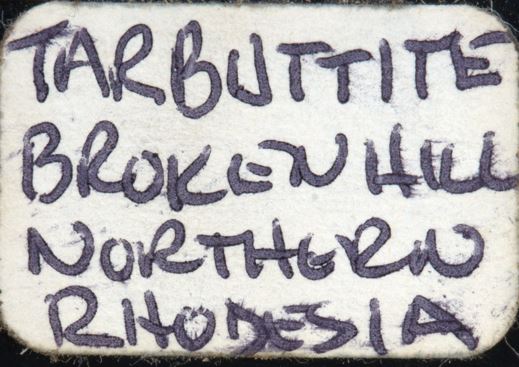 TARBUTTITE
BROKEN HILL
NORTHERN
RHODESIA